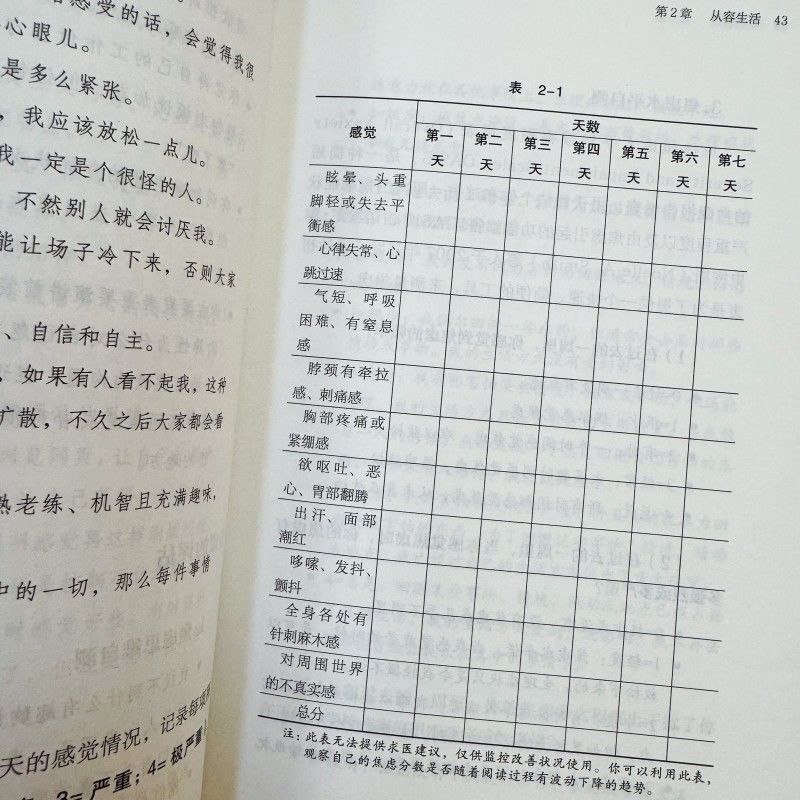 感受的话，会觉得我很
心眼儿。
是多么紧张。
，我应该放松一点儿。
我一定是个很怪的人。
不然别人就会讨厌我。
能让场子冷下来，否则大家
、自信和自主。
，如果有人看不起我，这种
扩散，不久之后大家都会看
熟老练、机智且充满趣味，
中的一切，那么每件事情
天的感觉情况，记录每项
3= 严重；4= 极严重
第2章 从容生活 43
表 2-1
感觉 天数
第一天 第二天 第三天 第四天 第五天 第六天 第七天
眩晕、头重
脚轻或失去平
衡感
心律失常、心
跳过速
气短、呼吸
困难、有窒息
感
脖颈有牵拉
感、刺痛感
胸部疼痛或
紧绷感
欲呕吐、恶
心、胃部翻腾
出汗、面部
潮红
哆嗦、发抖、
颤抖
全身各处有
针刺麻木感
对周围世界
的不真实感
总分
注：此表无法提供求医建议，仅供监控改善状况使用。你可以利用此表，
观察自己的焦虑分数是否随着阅读过程有波动下降的趋势。